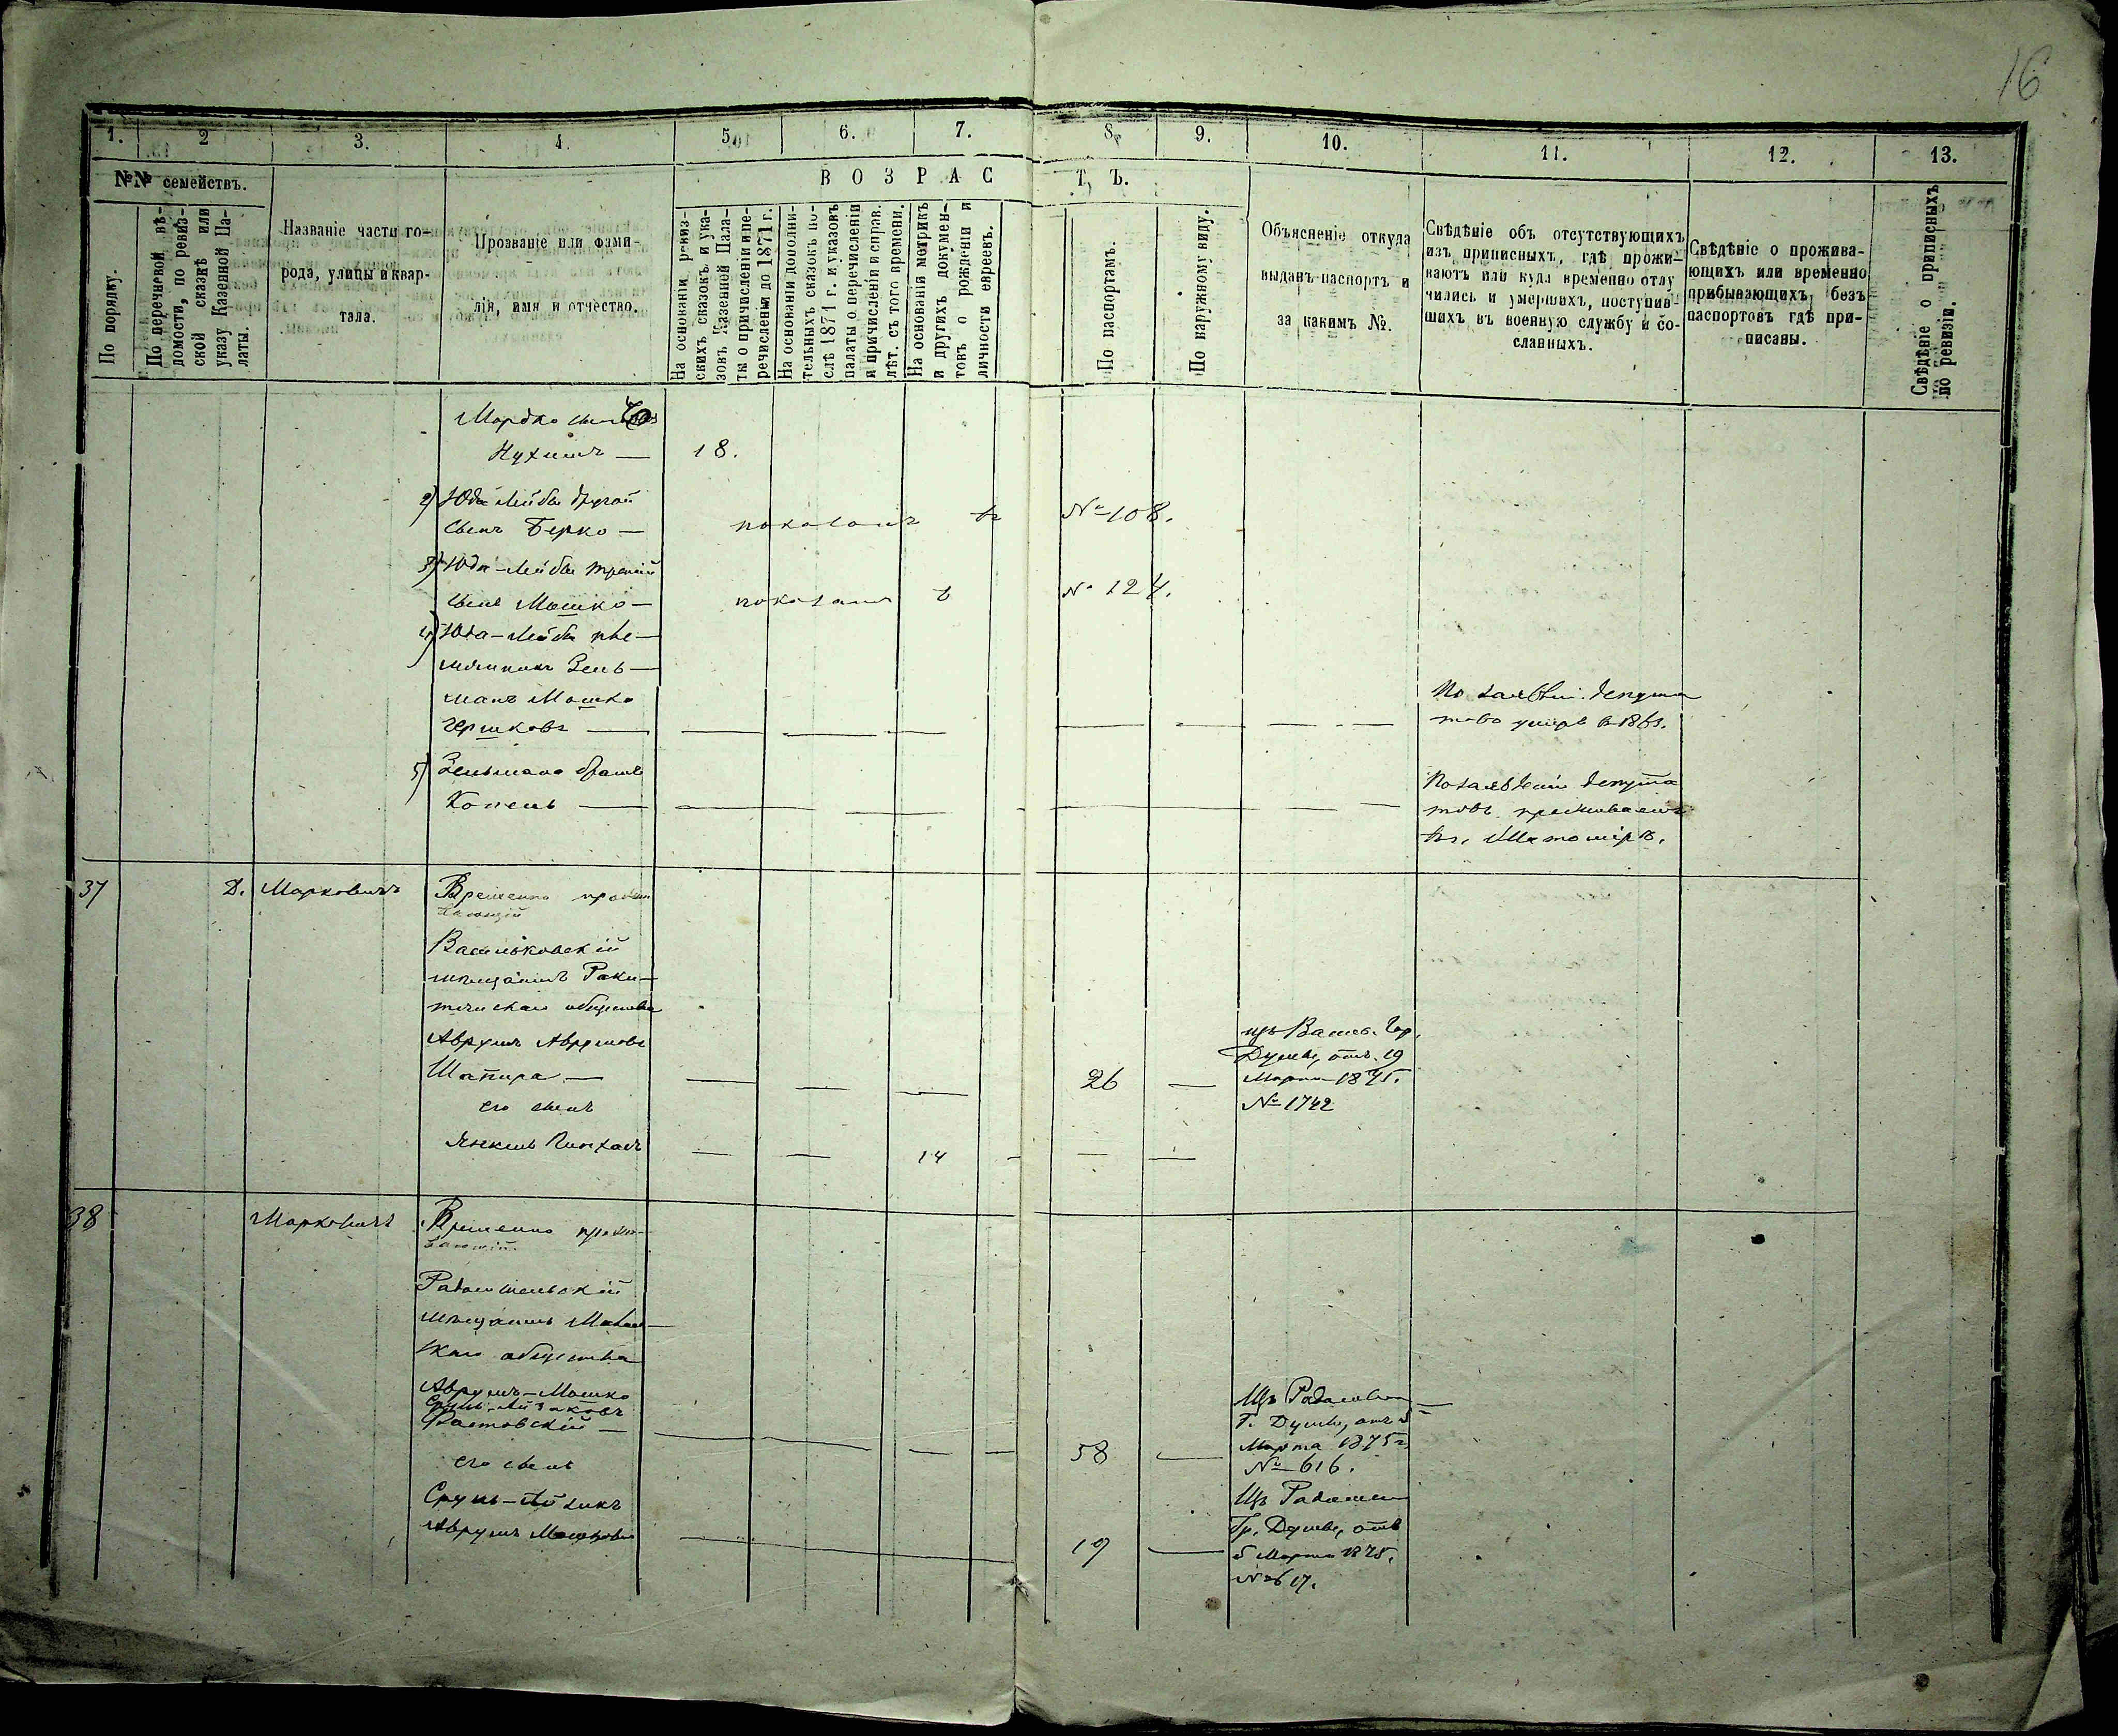 16
1. 2 3. 4. 5. 6. 7. 8. 9. 10. 11. 12. 13.
№№ семействъ.
По порядку.
По перечневой вѣ-
домости, по ревиз-
ской сказкѣ или
указу Казенной Па-
латы.
Названіе части го-
рода, улицы и квар-
тала.
Прозваніе или фами-
лія, имя и отчество.
ВОЗРАСТЪ.
На основаніи ревиз-
скихъ сказокъ и ука-
зовъ Казенной Пала-
ты о причисленіи и пе-
речисленіи до 1871 г.
На основаніи дополни-
тельныхъ сказокъ по-
слѣ 1871 г. и указовъ
палаты о перечисленіи
и причисленіи и справ.
лѣт. съ того времени.
На основаніи метрикъ
и другихъ докумен-
товъ о рожденіи и
личности евреевъ.
По паспортамъ.
По наружному виду.
Объясненіе откуда
выданъ паспортъ и
за какимъ №.
Свѣдѣніе объ отсутствующихъ
изъ приписныхъ, гдѣ прожи-
ваютъ или куда временно отлу
чились и умершихъ, поступив-
шихъ въ военную службу и со-
сланныхъ.
Свѣдѣніе о прожива-
ющихъ или временно
прибывающихъ безъ
паспортовъ гдѣ при-
писаны.
Свѣдѣніе о приписныхъ
по ревизіи.
Мордко сынъ
Нухимъ — 18.
2) Юда Лейбы другой
сынъ Берко — показанъ въ № 108.
3) Юда-Лейбы третій
сынъ Мошко — показанъ въ № 124.
4) Юда-Лейбы пле-
мянникъ Зель-
манъ Мошко
Гершковъ —
По заявлен. депута
товъ умеръ в 1863.
5) Зельмана братъ
Копель —
По заявленію депута
товъ проживаетъ
въ г. Житомирѣ.
37 Д. Марковичъ Временно прожи
вающій
Васильковскій
мѣщанинъ Раки-
тянскаго общества
Аврумъ Аврумовъ
Шапира — 26 —
изъ Васил. Гор.
Думы, отъ 19
Марта 1875.
№ 1742
его сынъ
Янкель Пинхасъ 14
38 Марковичъ Временно прожи-
вающій
Радомысльскій
мѣщанинъ Макаров-
скаго общества
Аврумъ-Мошко
Сруль-Айзиковъ
Фастовскій — 58 —
Изъ Радомысл.
Г. Думы, отъ 5
Марта 1875 г.
№ 616.
его сынъ
Сруль-Айзикъ
Аврумъ Мошковъ 19 —
Изъ Радомысл
Гр. Думы, отъ
5 Марта 1875.
№ 617.